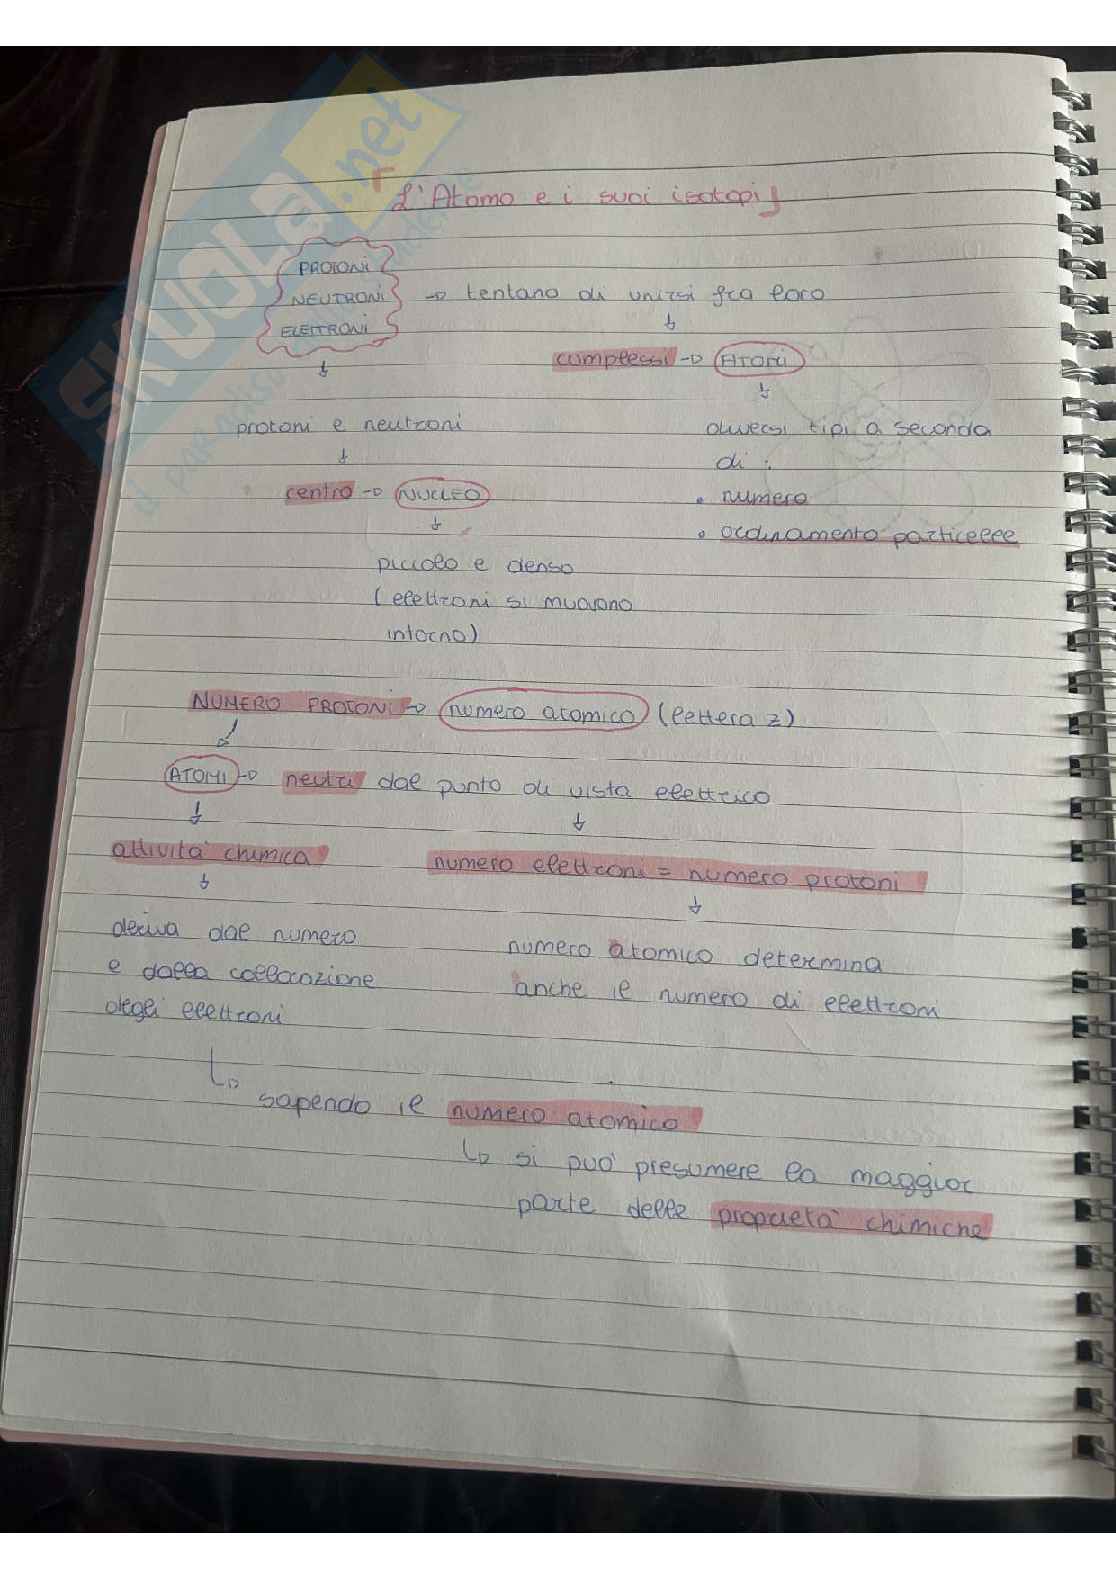 SKUOLA.net
il paradiso dello studente
L'Atomo e i suoi isotopi
PROTONI
NEUTRONI → tentano di unirsi fra loro
ELETTRONI
↓
complessi → ATOMI
↓
↓
protoni e neutroni
diversi tipi a seconda
di :
↓
centro → NUCLEO
• numero
↓
• ordinamento particelle
piccolo e denso
(elettroni si muovono
intorno)
NUMERO PROTONI → numero atomico (lettera z)
↓
ATOMI → neutri dal punto di vista elettrico
↓
↓
attività chimica
numero elettroni = numero protoni
↓
↓
deriva dal numero
e dalla collocazione
degli elettroni
numero atomico determina
anche il numero di elettroni
↳ sapendo il numero atomico
↳ si può presumere la maggior
parte delle proprietà chimiche